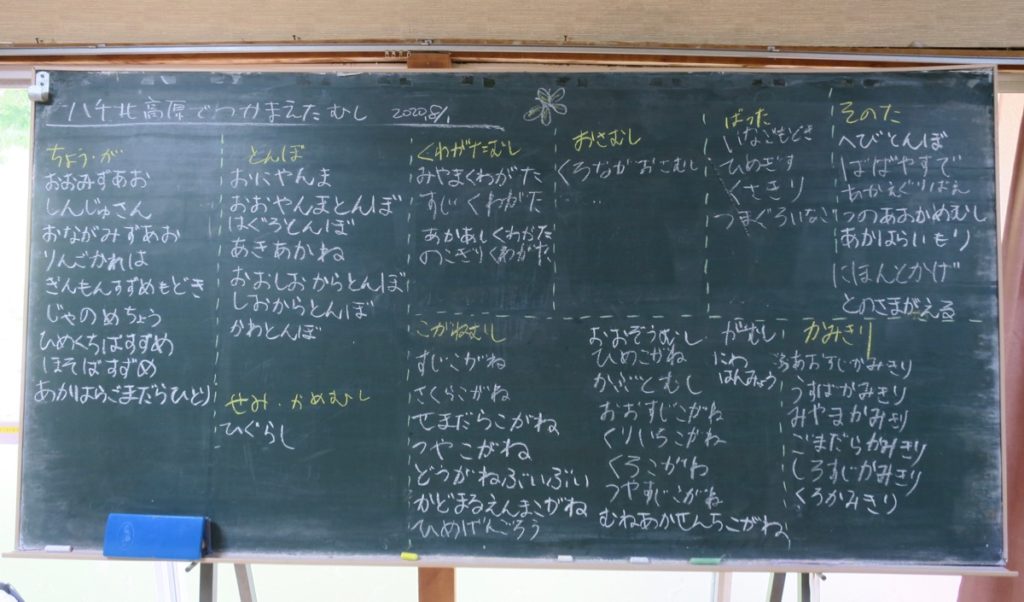 ハチ北高原でつかまえたむし 2020 8/1
ちょう・が
おおみずあお
しんじゅさん
おながみずあお
りんごかれは
ぎんもんすずめもどき
じゃのめちょう
ひめくちばすずめ
ほそばすずめ
あかはらごまだらひとり
とんぼ
おにやんま
おおやんまとんぼ
はぐろとんぼ
あきあかね
おおしおからとんぼ
しおからとんぼ
かわとんぼ
せみ・かめむし
ひぐらし
くわがたむし
みやまくわがた
すじくわがた
あかあしくわがた
のこぎりくわがた
おさむし
くろながおさむし
ばった
いなごもどき
ひめぎす
くさきり
つまぐろいなご
そのた
へびとんぼ
ばばやすで
つのあおかめむし
あかはらいもり
にほんとかげ
とのさまがえる
こがねむし
すじこがね
さくらこがね
せまだらこがね
つやこがね
どうがねぶいぶい
かどまるえんまこがね
ひめげんごろう
おおぞうむし
ひめこがね
かぶとむし
おおすじこがね
くりいろこがね
くろこがね
つやすじこがね
むねあかせんちこがね
がむし
にわ
はんみょう
かみきり
あおすじかみきり
うすばかみきり
みやまかみきり
ごまだらかみきり
しろすじかみきり
くろかみきり